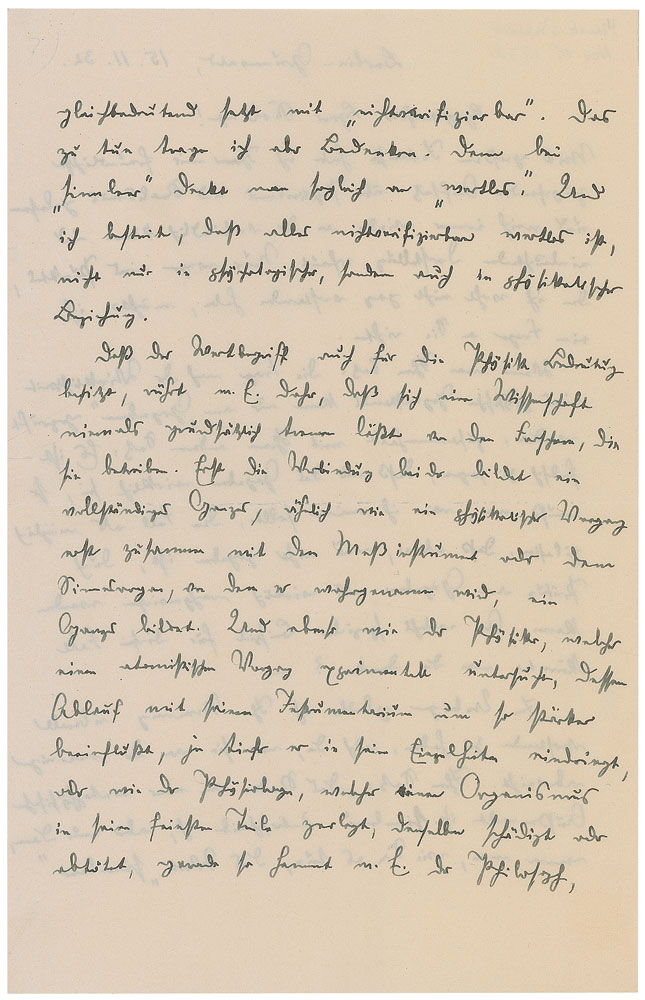 gleichbedeutend setzt mit „nichtverifizierbar". Das
zu tun trage ich aber Bedenken. Denn bei
„sinnleer" denkt man sogleich an „wertlos." Und
ich bestreite, daß alles nichtverifizierbare wertlos ist,
nicht nur in psychologischer, sondern auch in physikalischer
Beziehung.
Daß der Wertbegriff auch für die Physik Bedeutung
besitzt, rührt m. E. daher, daß sich eine Wissenschaft
niemals grundsätzlich trennen läßt von den Forschern, die
sie betreiben. Erst die Verbindung beider bildet ein
vollständiges Ganzes, ähnlich wie ein physikalischer Vorgang
erst zusammen mit dem Meßinstrument oder dem
Sinnesorgan, von dem er wahrgenommen wird, ein
Ganzes bildet. Und ebenso wie der Physiker, welcher
einen atomistischen Vorgang experimentell untersucht, dessen
Ablauf mit seinem Instrumentarium um so stärker
beeinflußt, je tiefer er in seine Einzelheiten eindringt,
oder wie der Physiologe, welcher einen Organismus
in seine feinsten Teile zerlegt, denselben schädigt oder
abtötet, gerade so hemmt m. E. der Philosoph,